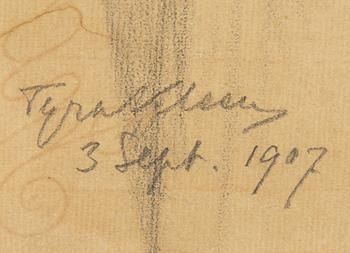 Tyra
3 Sept. 1907